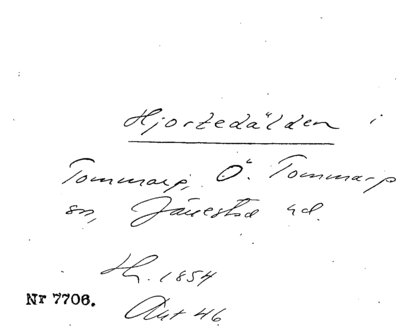 Hjortedälden i
Tommarp, Ö. Tommarp
sn, Järrestad hd.
Hz. 1854
Nr 7706.
Akt 46